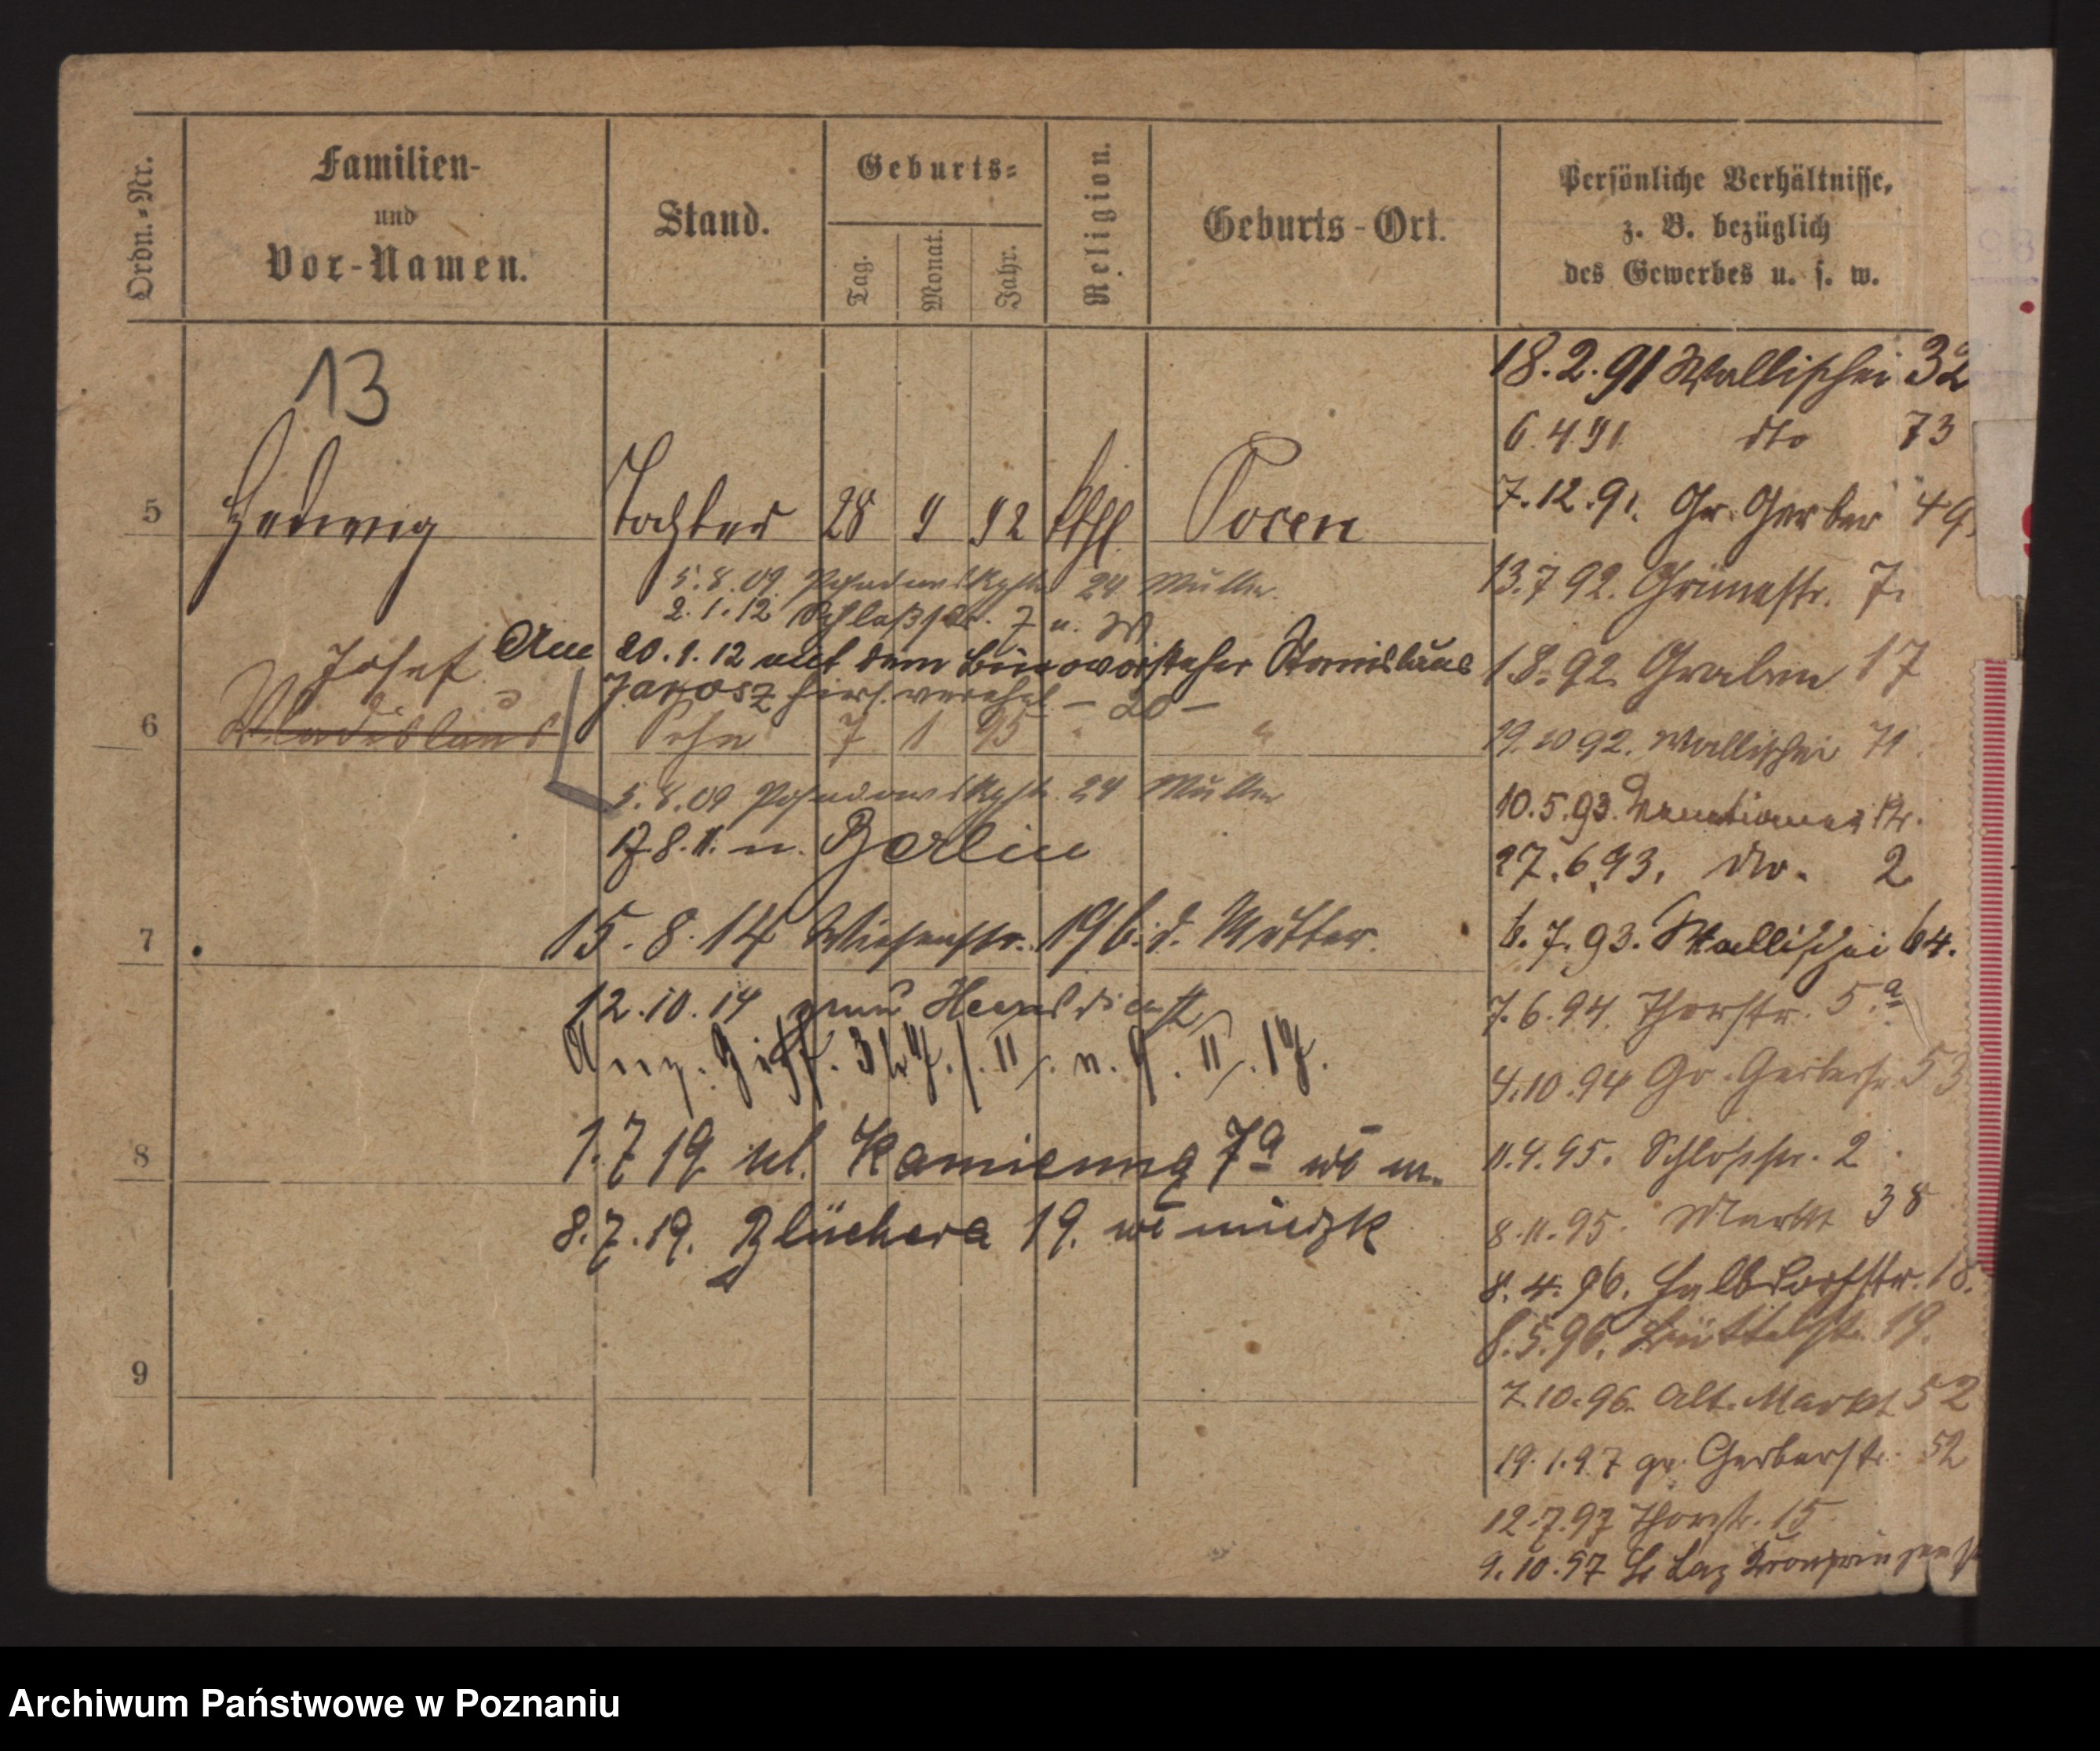 Ordn.-Nr.
Familien-
und
Vor-Namen.
Stand.
Geburts-
Tag.
Monat.
Jahr.
Religion.
Geburts-Ort.
Persönliche Verhältnisse,
z. B. bezüglich
des Gewerbes u. s. w.
13
5 Hedwig Tochter 28 9 92 kthl Posen
5.8.09. 24 Mutter.
2.1.12. Schloßstr. 7 u. W
Am 20.1.12 mit dem Bürovorsteher Stanislaus
Janosz hier verehel. – 20 –
Josef
6 Wladislaus Sohn 7 1 95 " "
5.8.09 24 Mutter
17.8.11. n. Berlin
7 15.8.14 Wiesenstr. 19 b. d. Mutter.
12.10.14 zum Heeresdienst
1.7.19 ul. Kamienna 7a
8
8.7.19. Blüchera 19.
9
18.2.91 Wallischei 32
6.4.91 dto 73
7.12.91. Gr. Gerber 49
13.7.92. Grünestr. 7.
1.8.92. Graben 17
19.10.92. Wallischei 71
10.5.93. Venetianer Str.
27.6.93. dto. 2
6.7.93. Wallischei 64.
7.6.94. Thorstr. 5.a
4.10.94 Gr. Gerberstr. 53
11.4.95. Schlossstr. 2
8.11.95. Markt 38
8.4.96. Halbdorfstr. 18.
8.5.96. Büttelstr. 19.
7.10.96. Alt. Markt 52
19.1.97 gr. Gerberstr. 52
12.7.97 Thorstr. 15
9.10.97 St Laz Kronprinzenst
Archiwum Państwowe w Poznaniu